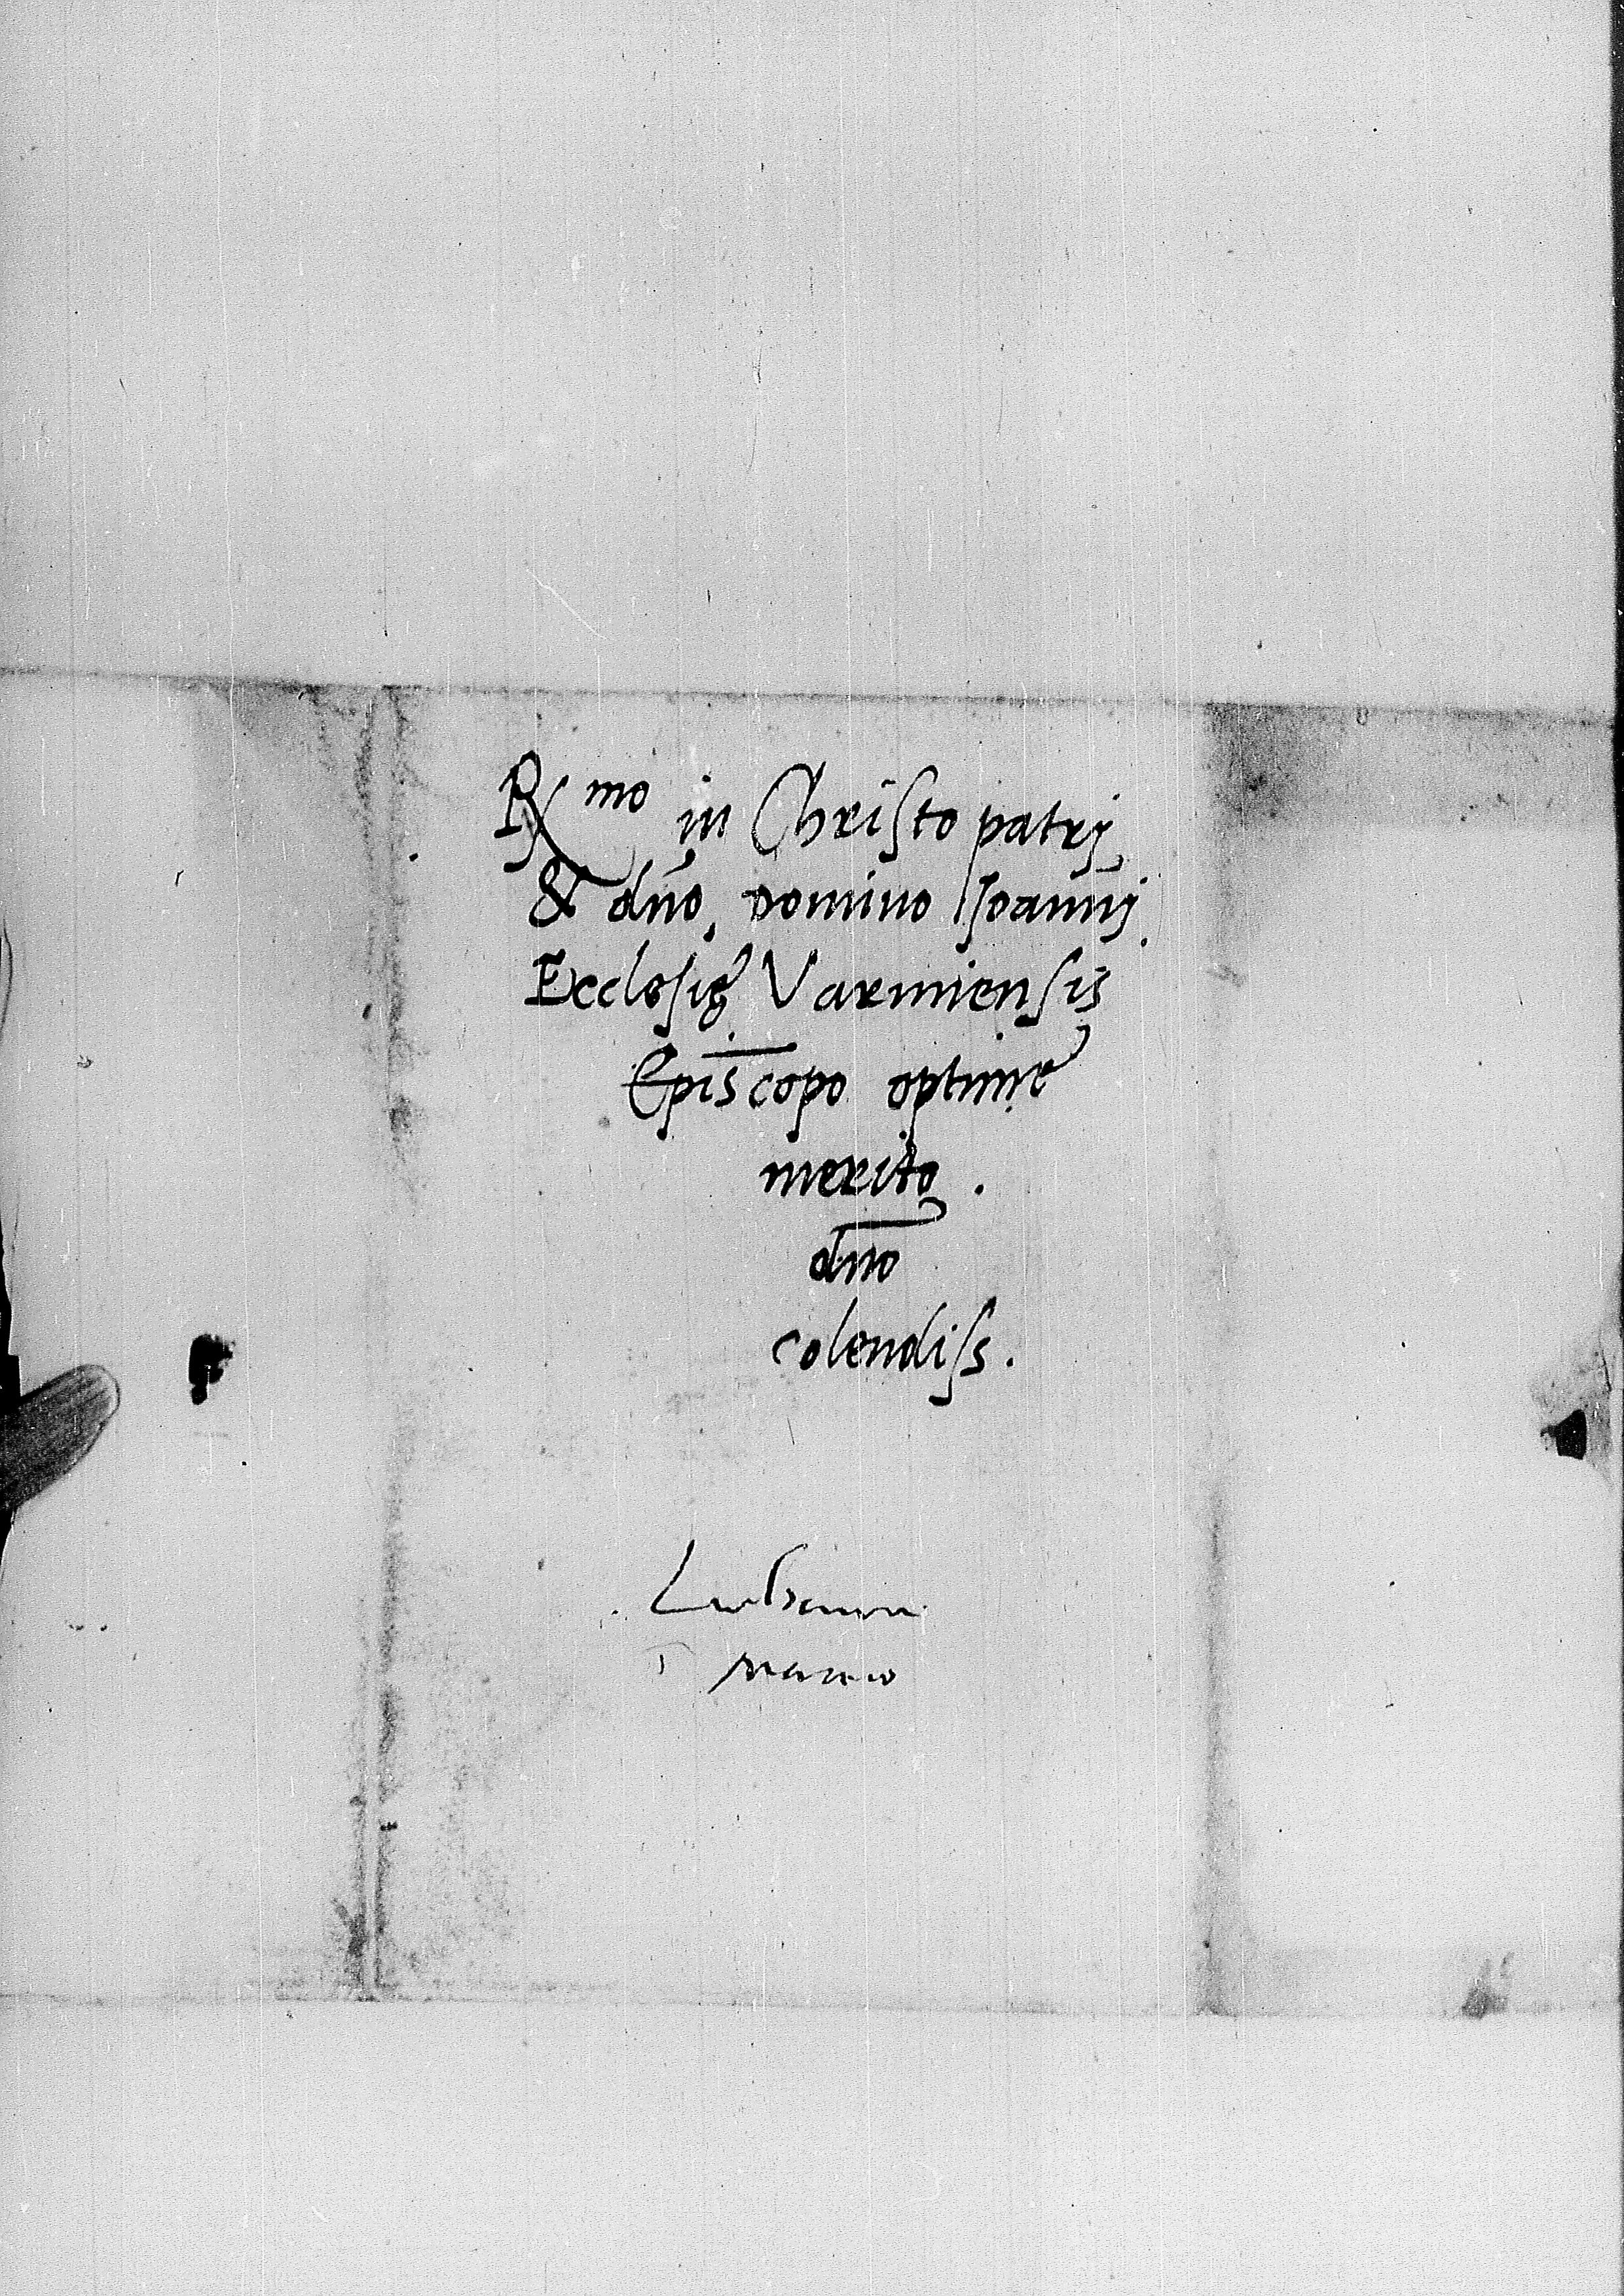 Rmo in Christo patrj
& dño, Domino Joannj
Ecclesię Varmiensis
Episcopo optime
merito.
dño
colendiss.